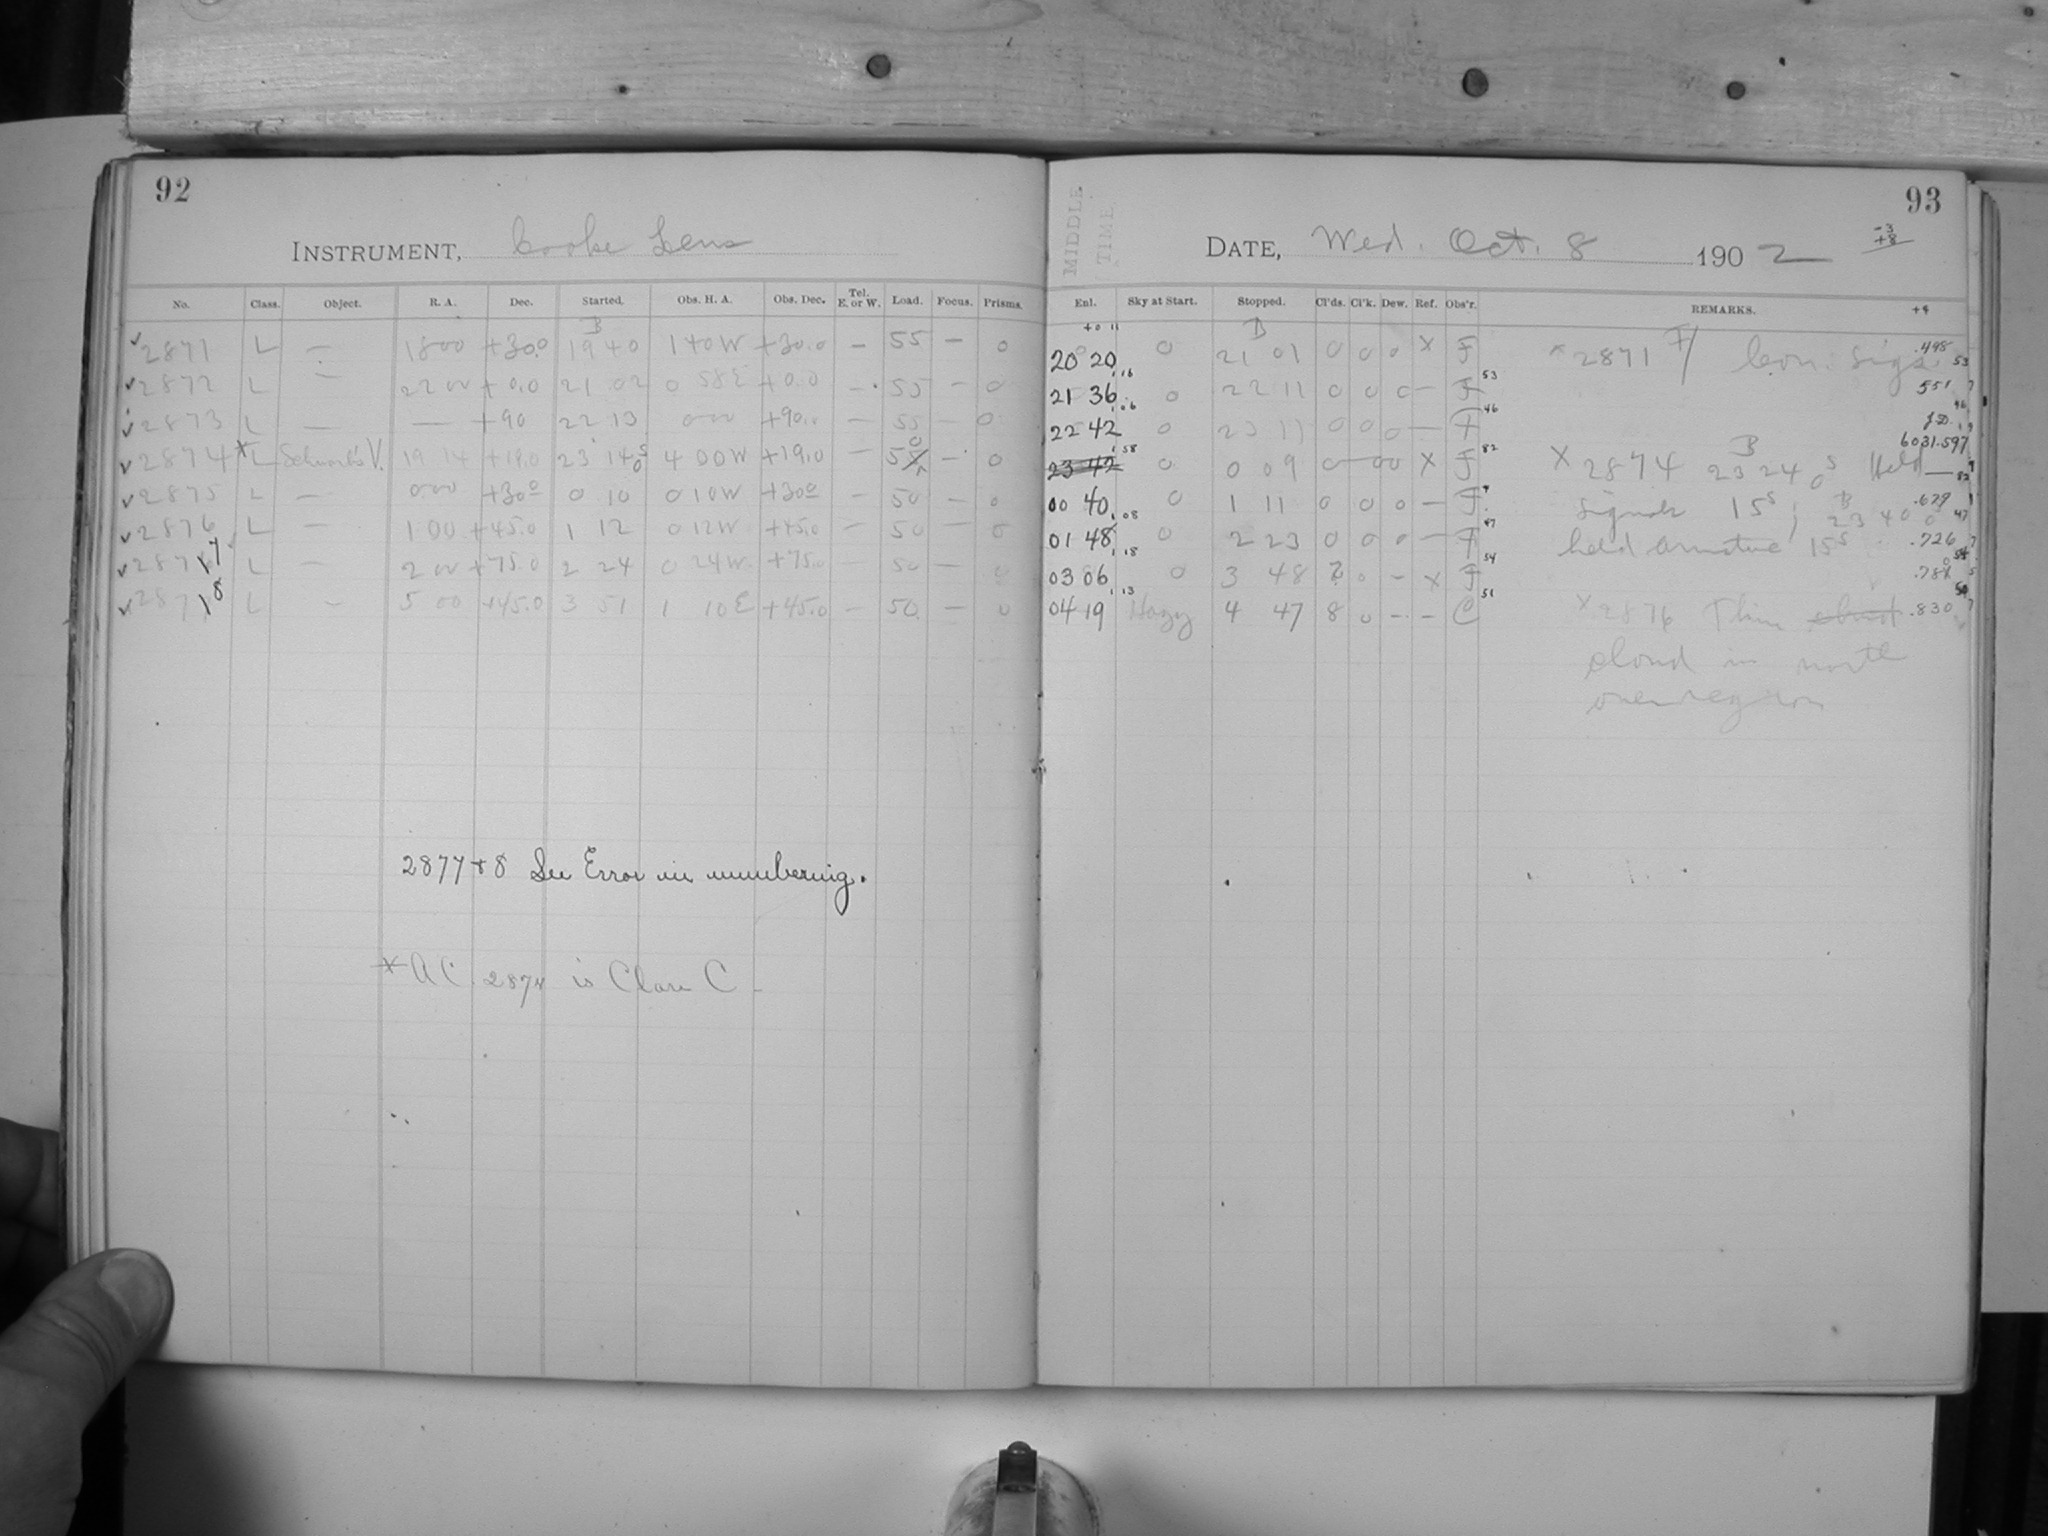 92
INSTRUMENT, Cooke Lens
No. Class. Object. R. A. Dec. Started. Obs. H. A. Obs. Dec. Tel. E. or W. Load. Focus. Prisms.
B
✓ 2871 L — 18 00 +30.0 19 40 1 40 W +30.0 — 55 — 0
✓ 2872 L — 22 00 +0.0 21 02 0 58 E +0.0 — 55 — 0
✓ 2873 L — — +90 22 13 0 00 +90.0 — 55 — 0
✓ 2874 * L 19 14 +19.0 23 14 4 00 W +19.0 — 50 — 0
✓ 2875 L — 0 00 +30.0 0 10 0 10 W +30.0 — 50 — 0
✓ 2876 L — 1 00 +45.0 1 12 0 12 W +45.0 — 50 — 0
✓ 2877 L — 2 00 +75.0 2 24 0 24 W +75.0 — 50 — 0
✓ 2878 L — 5 00 +45.0 3 51 1 10 E +45.0 — 50 — 0
2877 + 8 See Error in numbering.
* AC 2874 is Class C
93
MIDDLE TIME
DATE, Wed. Oct. 8 1902
-3
+8
Enl. Sky at Start. Stopped. Cl'ds. Cl'k. Dew. Ref. Obs'r. REMARKS. +9
B
20 20 0 21 01 0 0 0 X F * 2871 Con. Sigs. .498
21 36 0 22 11 0 0 0 — F 551
22 42 0 23 11 0 0 0 — F J.D.
6031.597
23 42 0 0 09 0 — 0 0 X F X 2874 23 24 0 Held —
00 40 0 1 11 0 0 0 — F signals 15s; 23 40 0 .679
01 48 0 2 23 0 0 0 — F held armature 15s .726
03 06 0 3 48 2 0 — X F
04 19 Hazy 4 47 8 0 — — C X 2876 Thin .830
cloud in north
over region